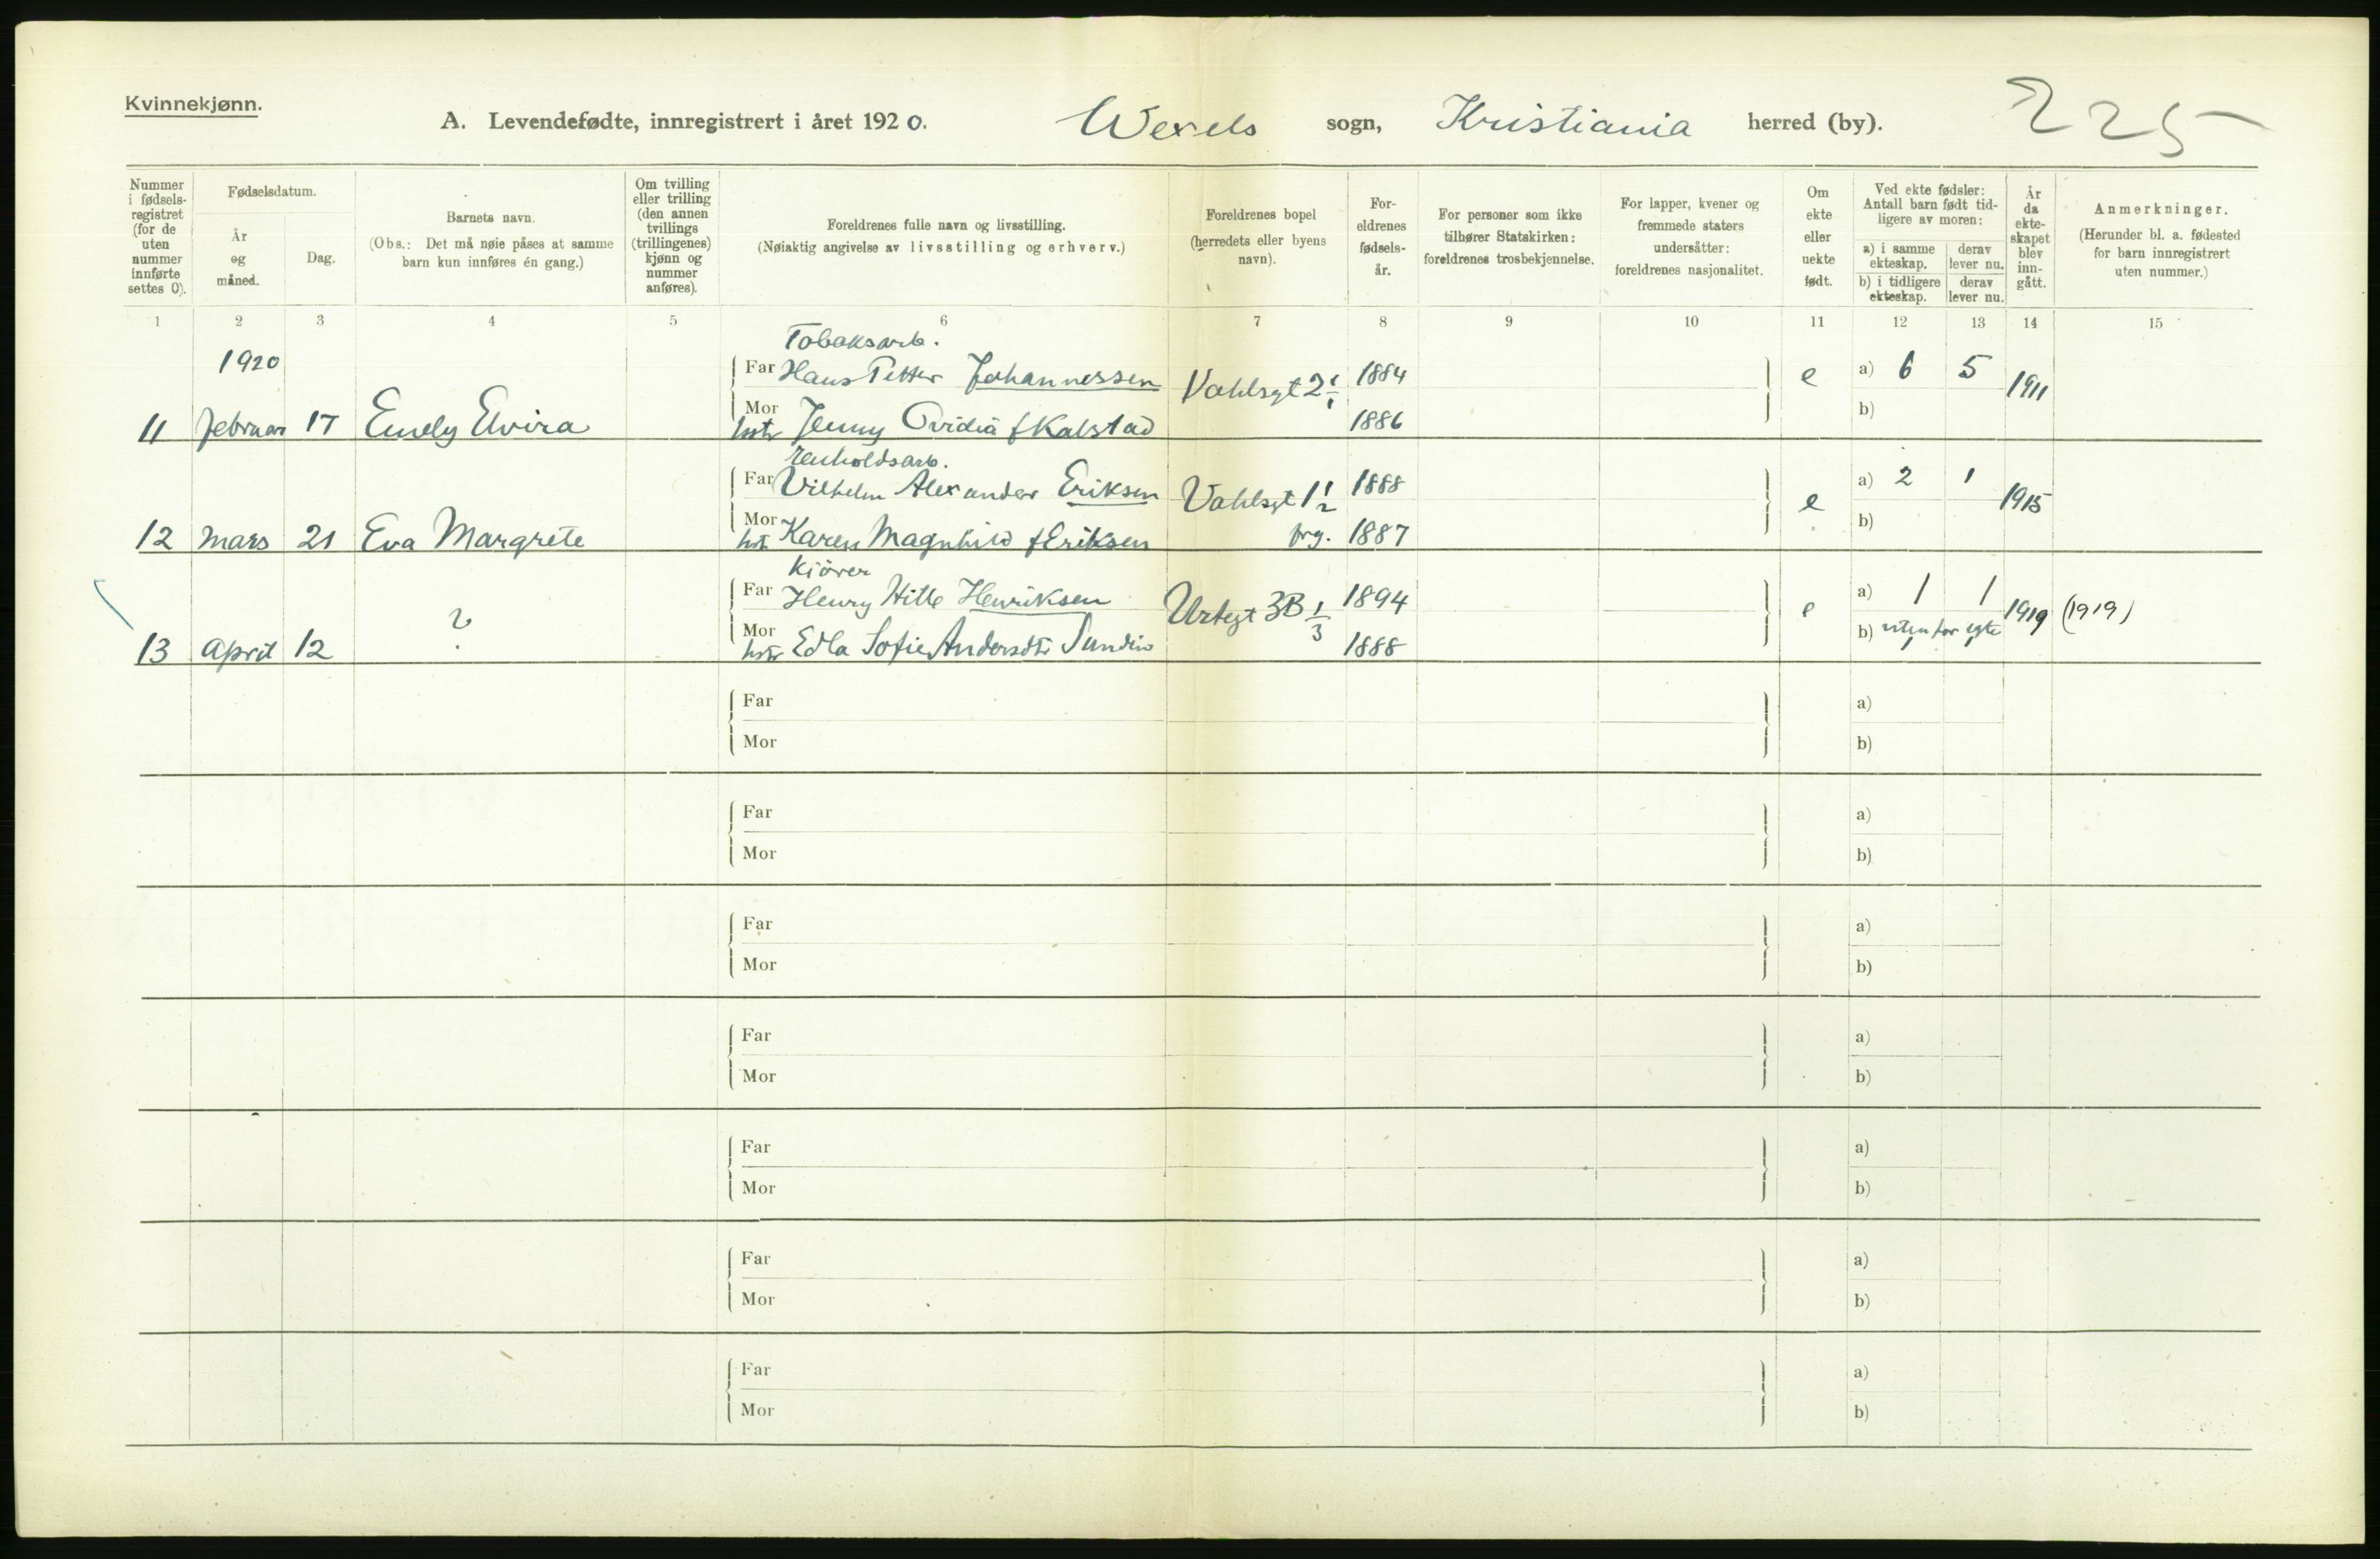 Kvinnekjønn.
A. Levendefødte, innregistrert i året 1920. Wexels sogn, Kristiania herred (by). 225
Nummer i fødsels-registret (for de uten nummer innførte settes 0).
Fødselsdatum.
År og måned.
Dag.
Barnets navn.
(Obs.: Det må nøie påses at samme barn kun innføres én gang.)
Om tvilling eller trilling (den annen tvillings (trillingenes) kjønn og nummer anføres).
Foreldrenes fulle navn og livsstilling.
(Nøiaktig angivelse av livsstilling og erhverv.)
Foreldrenes bopel (herredets eller byens navn).
For-eldrenes fødsels-år.
For personer som ikke tilhører Statskirken: foreldrenes trosbekjennelse.
For lapper, kvener og fremmede staters undersåtter: foreldrenes nasjonalitet.
Om ekte eller uekte født.
Ved ekte fødsler: Antall barn født tid-ligere av moren:
a) i samme ekteskap.
derav lever nu.
b) i tidligere ekteskap.
derav lever nu.
År da ekte-skapet blev inn-gått.
Anmerkninger.
(Herunder bl. a. fødested for barn innregistrert uten nummer.)
1 2 3 4 5 6 7 8 9 10 11 12 13 14 15
Tobaksarb.
1920
Far Hans Petter Johannessen Vahlsgt 2 1/1 1884 e a) 6 5 1911
Mor b)
11 februar 17 Emely Elvira hstr Jenny Ovidia f Kalstad 1886
Renholdsarb.
Far Vilhelm Alexander Eriksen Vahlsgt 1 1/2 1888 e a) 2 1 1915
Mor b)
12 mars 21 Eva Margrete hstr Karen Magnhild f Eriksen brg. 1887
Kjörer
Far Henry Hille Henriksen Urtegt 3B 1/3 1894 e a) 1 1 1919 (1919)
Mor b) utenfor egte
13 april 12 ? hstr Edla Sofie Andersdtr Sundin 1888
Far a)
Mor b)
Far a)
Mor b)
Far a)
Mor b)
Far a)
Mor b)
Far a)
Mor b)
Far a)
Mor b)
Far a)
Mor b)